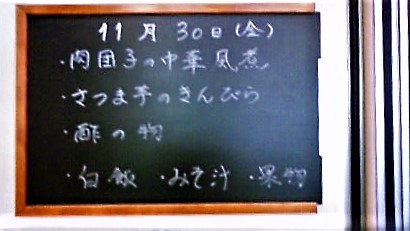 11月30日(金)
・肉団子の中華風煮
・さつま芋のきんぴら
・酢の物
・白飯 ・みそ汁 ・果物